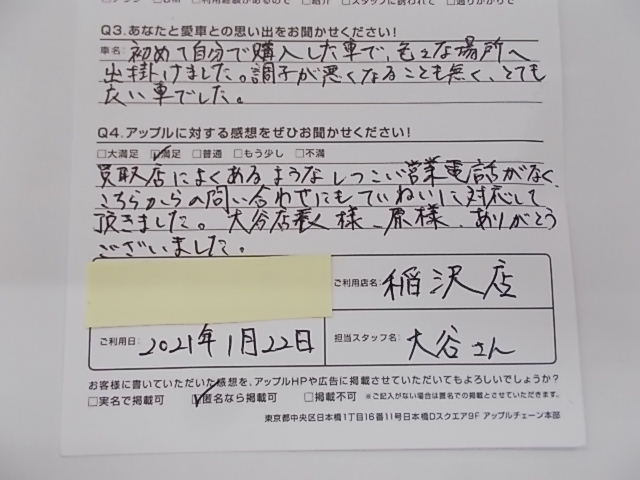 □チラシ □DM □利用経験があるので □紹介 □スタッフに誘われて □通りがかりで
Q3.あなたと愛車との思い出をお聞かせください!
車名: 初めて自分で購入した車で、色々な場所へ
出掛けました。調子が悪くなることも無く、とても
良い車でした。
Q4.アップルに対する感想をぜひお聞かせください!
□大満足 ☑満足 □普通 □もう少し □不満
買取店によくあるようなしつこい営業電話がなく、
こちらからの問い合わせにもていねいに対応して
頂きました。大谷店長様、原様、ありがとう
ございました。
ご利用店名: 稲沢店
ご利用日: 2021年1月22日 担当スタッフ名: 大谷さん
お客様に書いていただいた感想を、アップルHPや広告に掲載させていただいてもよろしいでしょうか?
□実名で掲載可 ☑匿名なら掲載可 □掲載不可 ※ご記入がない場合は匿名での掲載とさせていただきます。
東京都中央区日本橋1丁目16番11号日本橋Dスクエア9F アップルチェーン本部